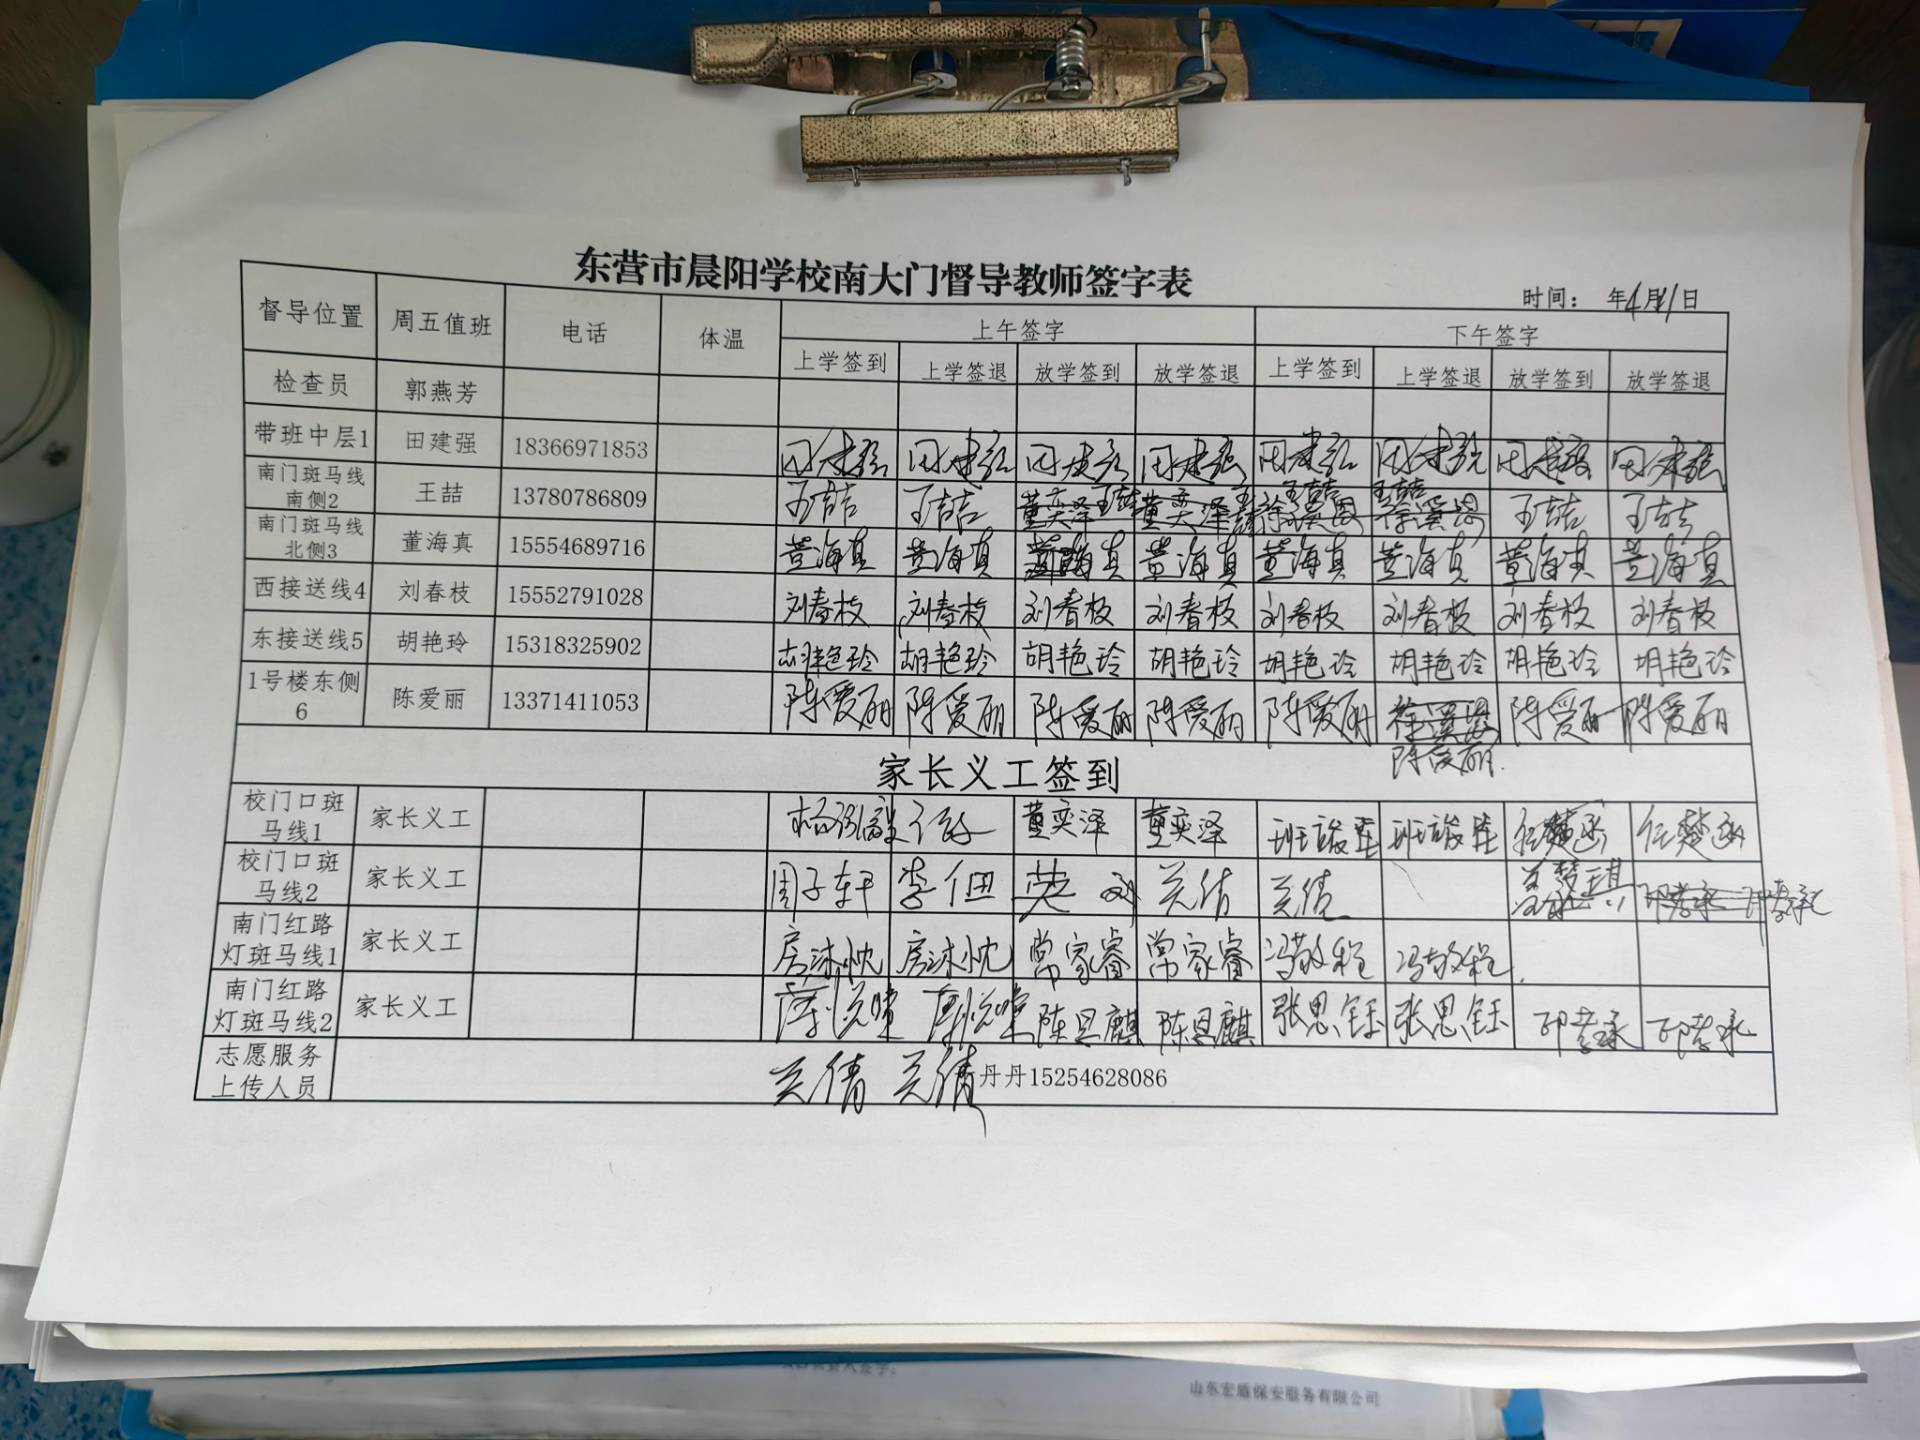 东营市晨阳学校南大门督导教师签字表
时间： 年4月 日
督导位置 周五值班 电话 体温 上午签字 下午签字
上学签到 上学签退 放学签到 放学签退 上学签到 上学签退 放学签到 放学签退
检查员 郭燕芳
带班中层1 田建强 18366971853 田建强 田建强 田建强 田建强 田建强 田建强 田建强 田建强
南门斑马线南侧2 王喆 13780786809 王喆 王喆 董奕泽 王喆 董奕泽 王喆 王喆 王喆 王喆 王喆
南门斑马线北侧3 董海真 15554689716 董海真 董海真 董海真 董海真 董海真 董海真 董海真 董海真
西接送线4 刘春枝 15552791028 刘春枝 刘春枝 刘春枝 刘春枝 刘春枝 刘春枝 刘春枝 刘春枝
东接送线5 胡艳玲 15318325902 胡艳玲 胡艳玲 胡艳玲 胡艳玲 胡艳玲 胡艳玲 胡艳玲 胡艳玲
1号楼东侧6 陈爱丽 13371411053 陈爱丽 陈爱丽 陈爱丽 陈爱丽 陈爱丽 陈爱丽 陈爱丽 陈爱丽
家长义工签到
校门口斑马线1 家长义工 董奕泽 董奕泽 任楚函 任楚函
校门口斑马线2 家长义工 周子轩 关倩 关倩
南门红路灯斑马线1 家长义工 房沐忱 房沐忱 常家睿 常家睿 冯敬程 冯敬程
南门红路灯斑马线2 家长义工 陈昱麒 陈昱麒 张思钰 张思钰 邱孝承 邱孝承
志愿服务上传人员 关倩 关倩 丹丹15254628086
山东宏盾保安服务有限公司